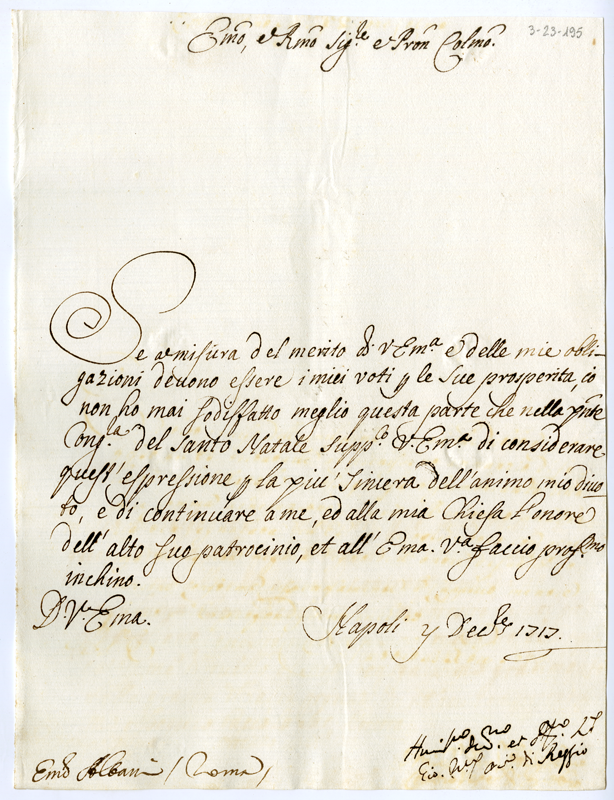 3-23-195
Emo, e Rmo Sig.re e Pron Colmo.
Se a misura del merito di V Em.a e delle mie obli-
gazioni devono essere i miei voti p le sue prosperita, io
non ho mai sodisfatto meglio questa parte che nella pnte
Cong.la del Santo Natale supp.co V. Em.a di considerare
quest' espressione p la piu' sincera dell'animo mio divo
to, e di continuare a me, ed alla mia Chiesa l'onore
dell' alto suo patrocinio, et all' Ema. V.a faccio prof.mo
inchino.
D. V.a Ema.
Napoli 7 Decbre 1717.
Humo. et
di Reggio
Emo Albani (Roma)